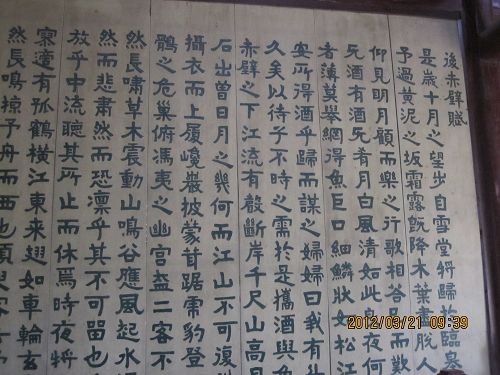 後赤壁賦
是歲十月之望步自雪堂將歸於臨皋
予過黃泥之坂霜露既降木葉盡脫人
仰見明月顧而樂之行歌相答已而歎
无酒有酒无肴月白風清如此良夜何
者薄莫舉網得魚巨口細鱗狀如松江
安所得酒乎歸而謀之婦婦曰我有斗
久矣以待子不時之需於是攜酒與魚
赤壁之下江流有聲斷岸千尺山高月
石出曾日月之幾何而江山不可復
攝衣而上履巉巖披蒙茸踞虎豹登
鶻之危巢俯馮夷之幽宮盖二客不
然長嘯草木震動山鳴谷應風起水
然而悲肅然而恐凜乎其不可畱也
放乎中流聽其所止而休焉時夜將
寥適有孤鶴橫江東來翅如車輪玄
然長鳴掠予舟而西也須臾客
2012/03/21 09:39